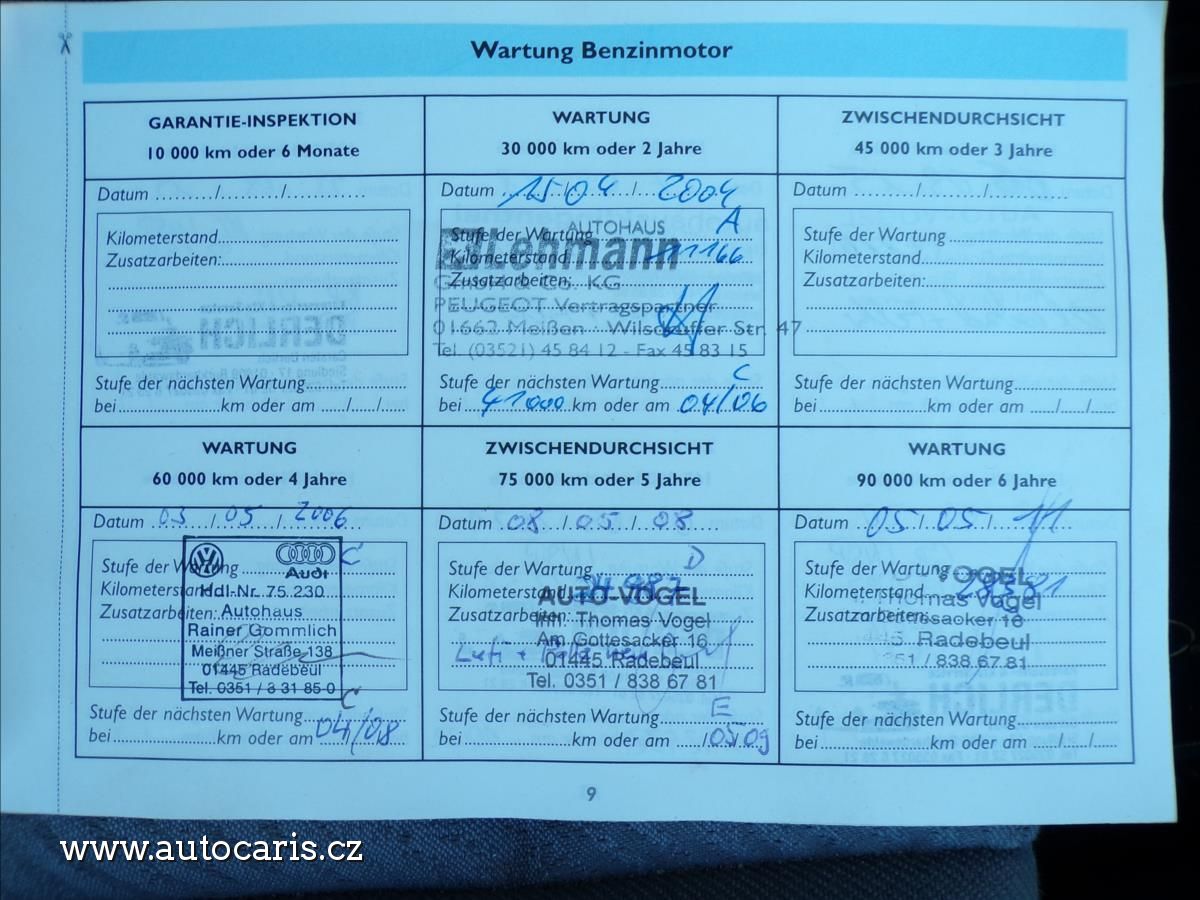 Wartung Benzinmotor
GARANTIE-INSPEKTION
10 000 km oder 6 Monate
Datum ........./........../..............
Kilometerstand
Zusatzarbeiten:
Stufe der nächsten Wartung
bei km oder am ...../...../.....
WARTUNG
30 000 km oder 2 Jahre
Datum 15/04/2004
AUTOHAUS
Stufe der Wartung A
Lehmann
Kilometerstand 11166
Zusatzarbeiten:
GmbH & Co. KG
PEUGEOT Vertragspartner
01662 Meißen - Wilsdruffer Str. 47
Tel. (03521) 45 84 12 - Fax 45 83 15
Stufe der nächsten Wartung C
bei 41000 km oder am 04/06
ZWISCHENDURCHSICHT
45 000 km oder 3 Jahre
Datum ........./........../..............
Stufe der Wartung
Kilometerstand
Zusatzarbeiten:
Stufe der nächsten Wartung
bei km oder am ...../...../.....
WARTUNG
60 000 km oder 4 Jahre
Datum 03/05/2006
Stufe der Wartung C
Audi
Kilometerstand
Hdl-Nr. 75 230
Zusatzarbeiten:
Autohaus
Rainer Gommlich
Meißner Straße 138
01445 Radebeul
Tel. 0351 / 8 31 85-0
Stufe der nächsten Wartung C
bei km oder am 04/08
ZWISCHENDURCHSICHT
75 000 km oder 5 Jahre
Datum 08/05/08
Stufe der Wartung D
Kilometerstand
AUTO-VOGEL
Zusatzarbeiten:
Inh. Thomas Vogel
Am Gottesacker 16
01445 Radebeul
Tel. 0351 / 838 67 81
Stufe der nächsten Wartung E
bei km oder am 05/09
WARTUNG
90 000 km oder 6 Jahre
Datum 05/05/11
Stufe der Wartung
VOGEL
Kilometerstand
Thomas Vogel
Zusatzarbeiten:
Radebeul
351 / 838 67 81
Stufe der nächsten Wartung
bei km oder am ...../...../.....
9
www.autocaris.cz